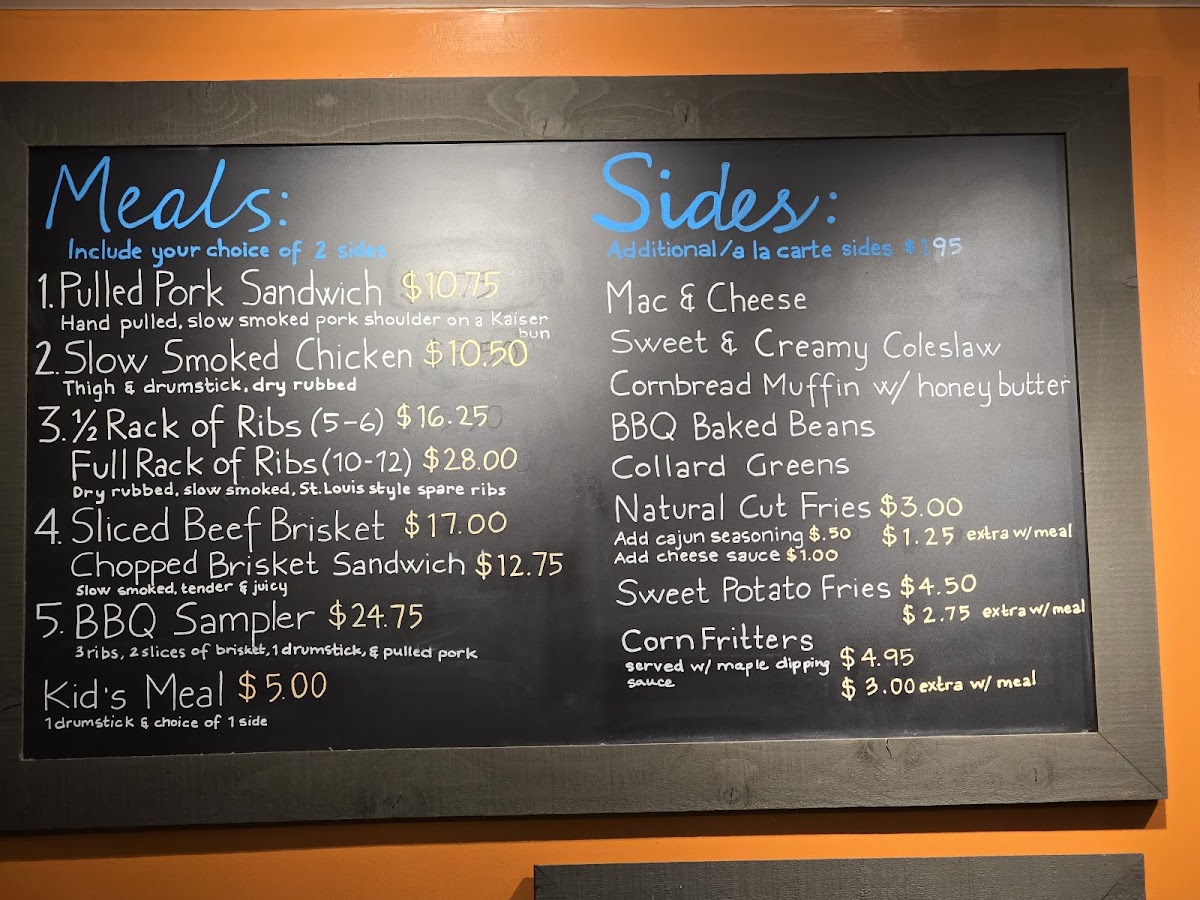 Meals:
Include your choice of 2 sides
1. Pulled Pork Sandwich $10.75
Hand pulled, slow smoked pork shoulder on a Kaiser
bun
2. Slow Smoked Chicken $10.50
Thigh & drumstick, dry rubbed
3. ½ Rack of Ribs (5-6) $16.25
Full Rack of Ribs (10-12) $28.00
Dry rubbed, slow smoked, St. Louis style spare ribs
4. Sliced Beef Brisket $17.00
Chopped Brisket Sandwich $12.75
Slow smoked, tender & juicy
5. BBQ Sampler $24.75
3 ribs, 2 slices of brisket, 1 drumstick, & pulled pork
Kid's Meal $5.00
1 drumstick & choice of 1 side
Sides:
Additional/a la carte sides $1.95
Mac & Cheese
Sweet & Creamy Coleslaw
Cornbread Muffin w/ honey butter
BBQ Baked Beans
Collard Greens
Natural Cut Fries $3.00
Add cajun seasoning $.50 $1.25 extra w/ meal
Add cheese sauce $1.00
Sweet Potato Fries $4.50
$2.75 extra w/ meal
Corn Fritters
served w/ maple dipping $4.95
sauce
$3.00 extra w/ meal